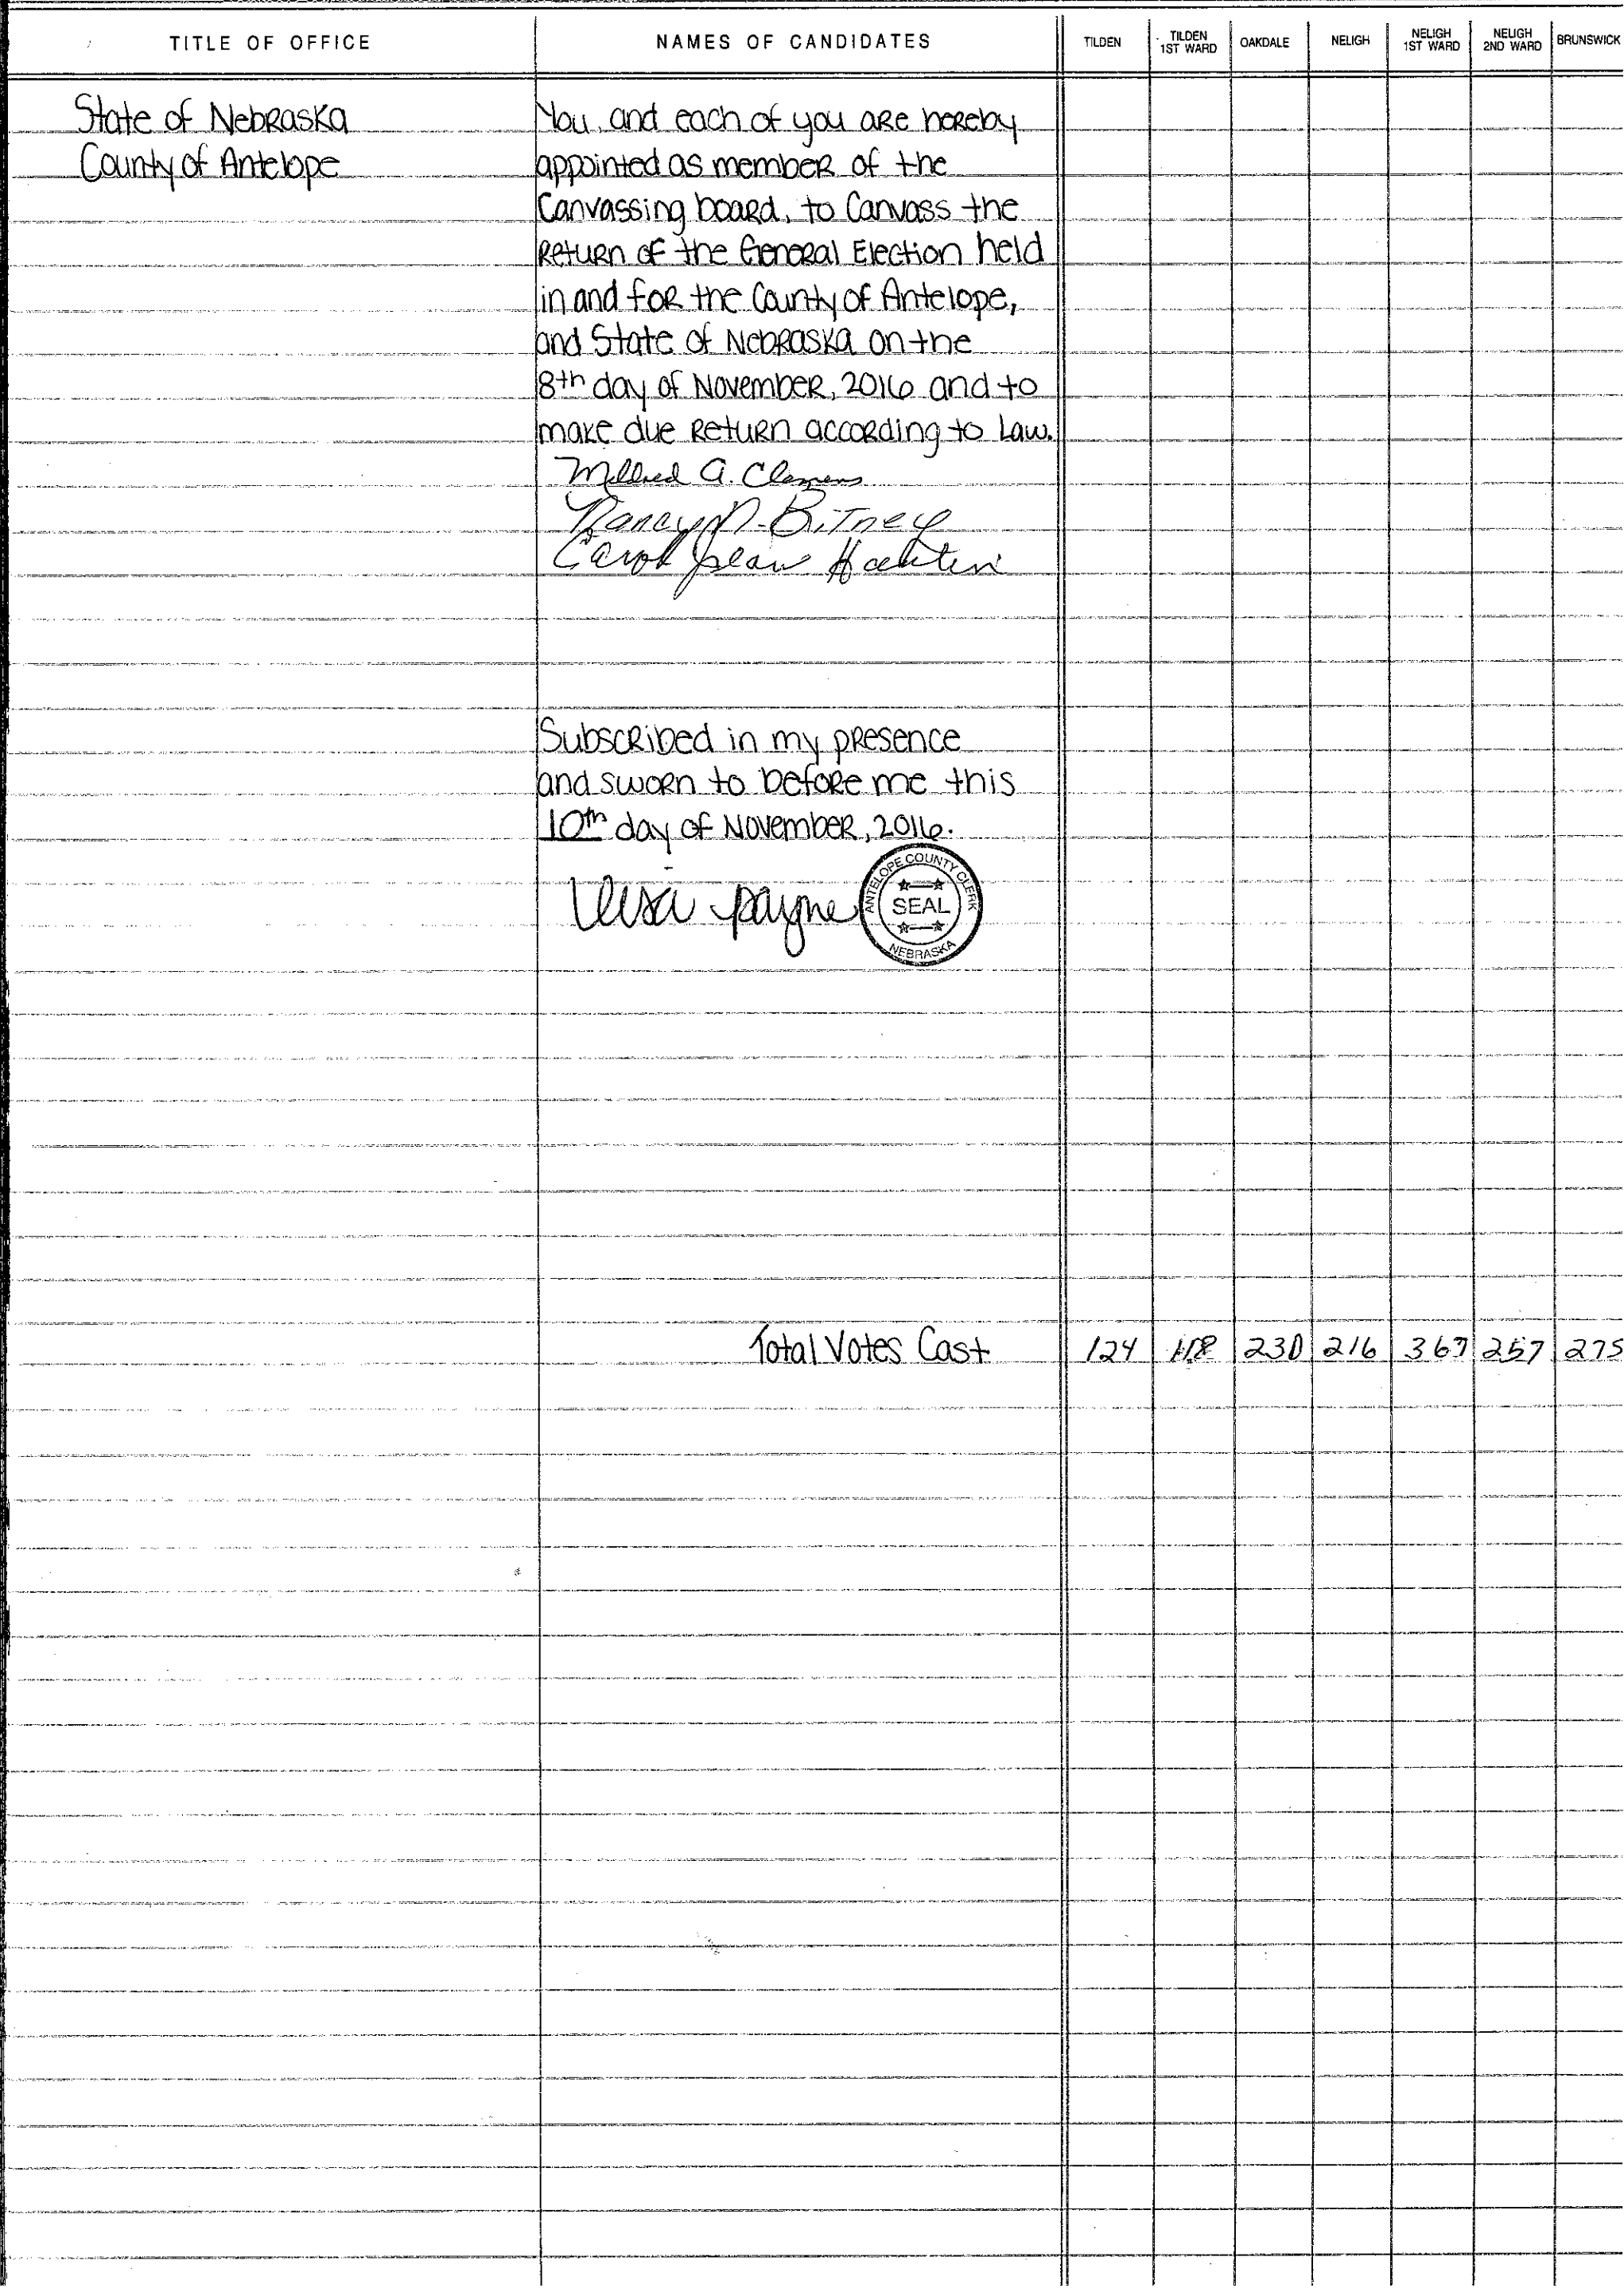 TITLE OF OFFICE NAMES OF CANDIDATES TILDEN TILDEN 1ST WARD OAKDALE NELIGH NELIGH 1ST WARD NELIGH 2ND WARD BRUNSWICK
State of Nebraska You, and each of you are hereby
County of Antelope appointed as member of the
Canvassing board, to Canvass the
Return of the General Election held
in and for the County of Antelope,
and State of Nebraska on the
8th day of November, 2016 and to
make due return according to Law.
Mildred A. Clemens
Nancy N. Bitney
Carol Jean
Subscribed in my presence
and sworn to before me this
10th day of November, 2016.
Payne
ANTELOPE COUNTY CLERK
SEAL
NEBRASKA
Total Votes Cast 124 118 230 216 367 257 275